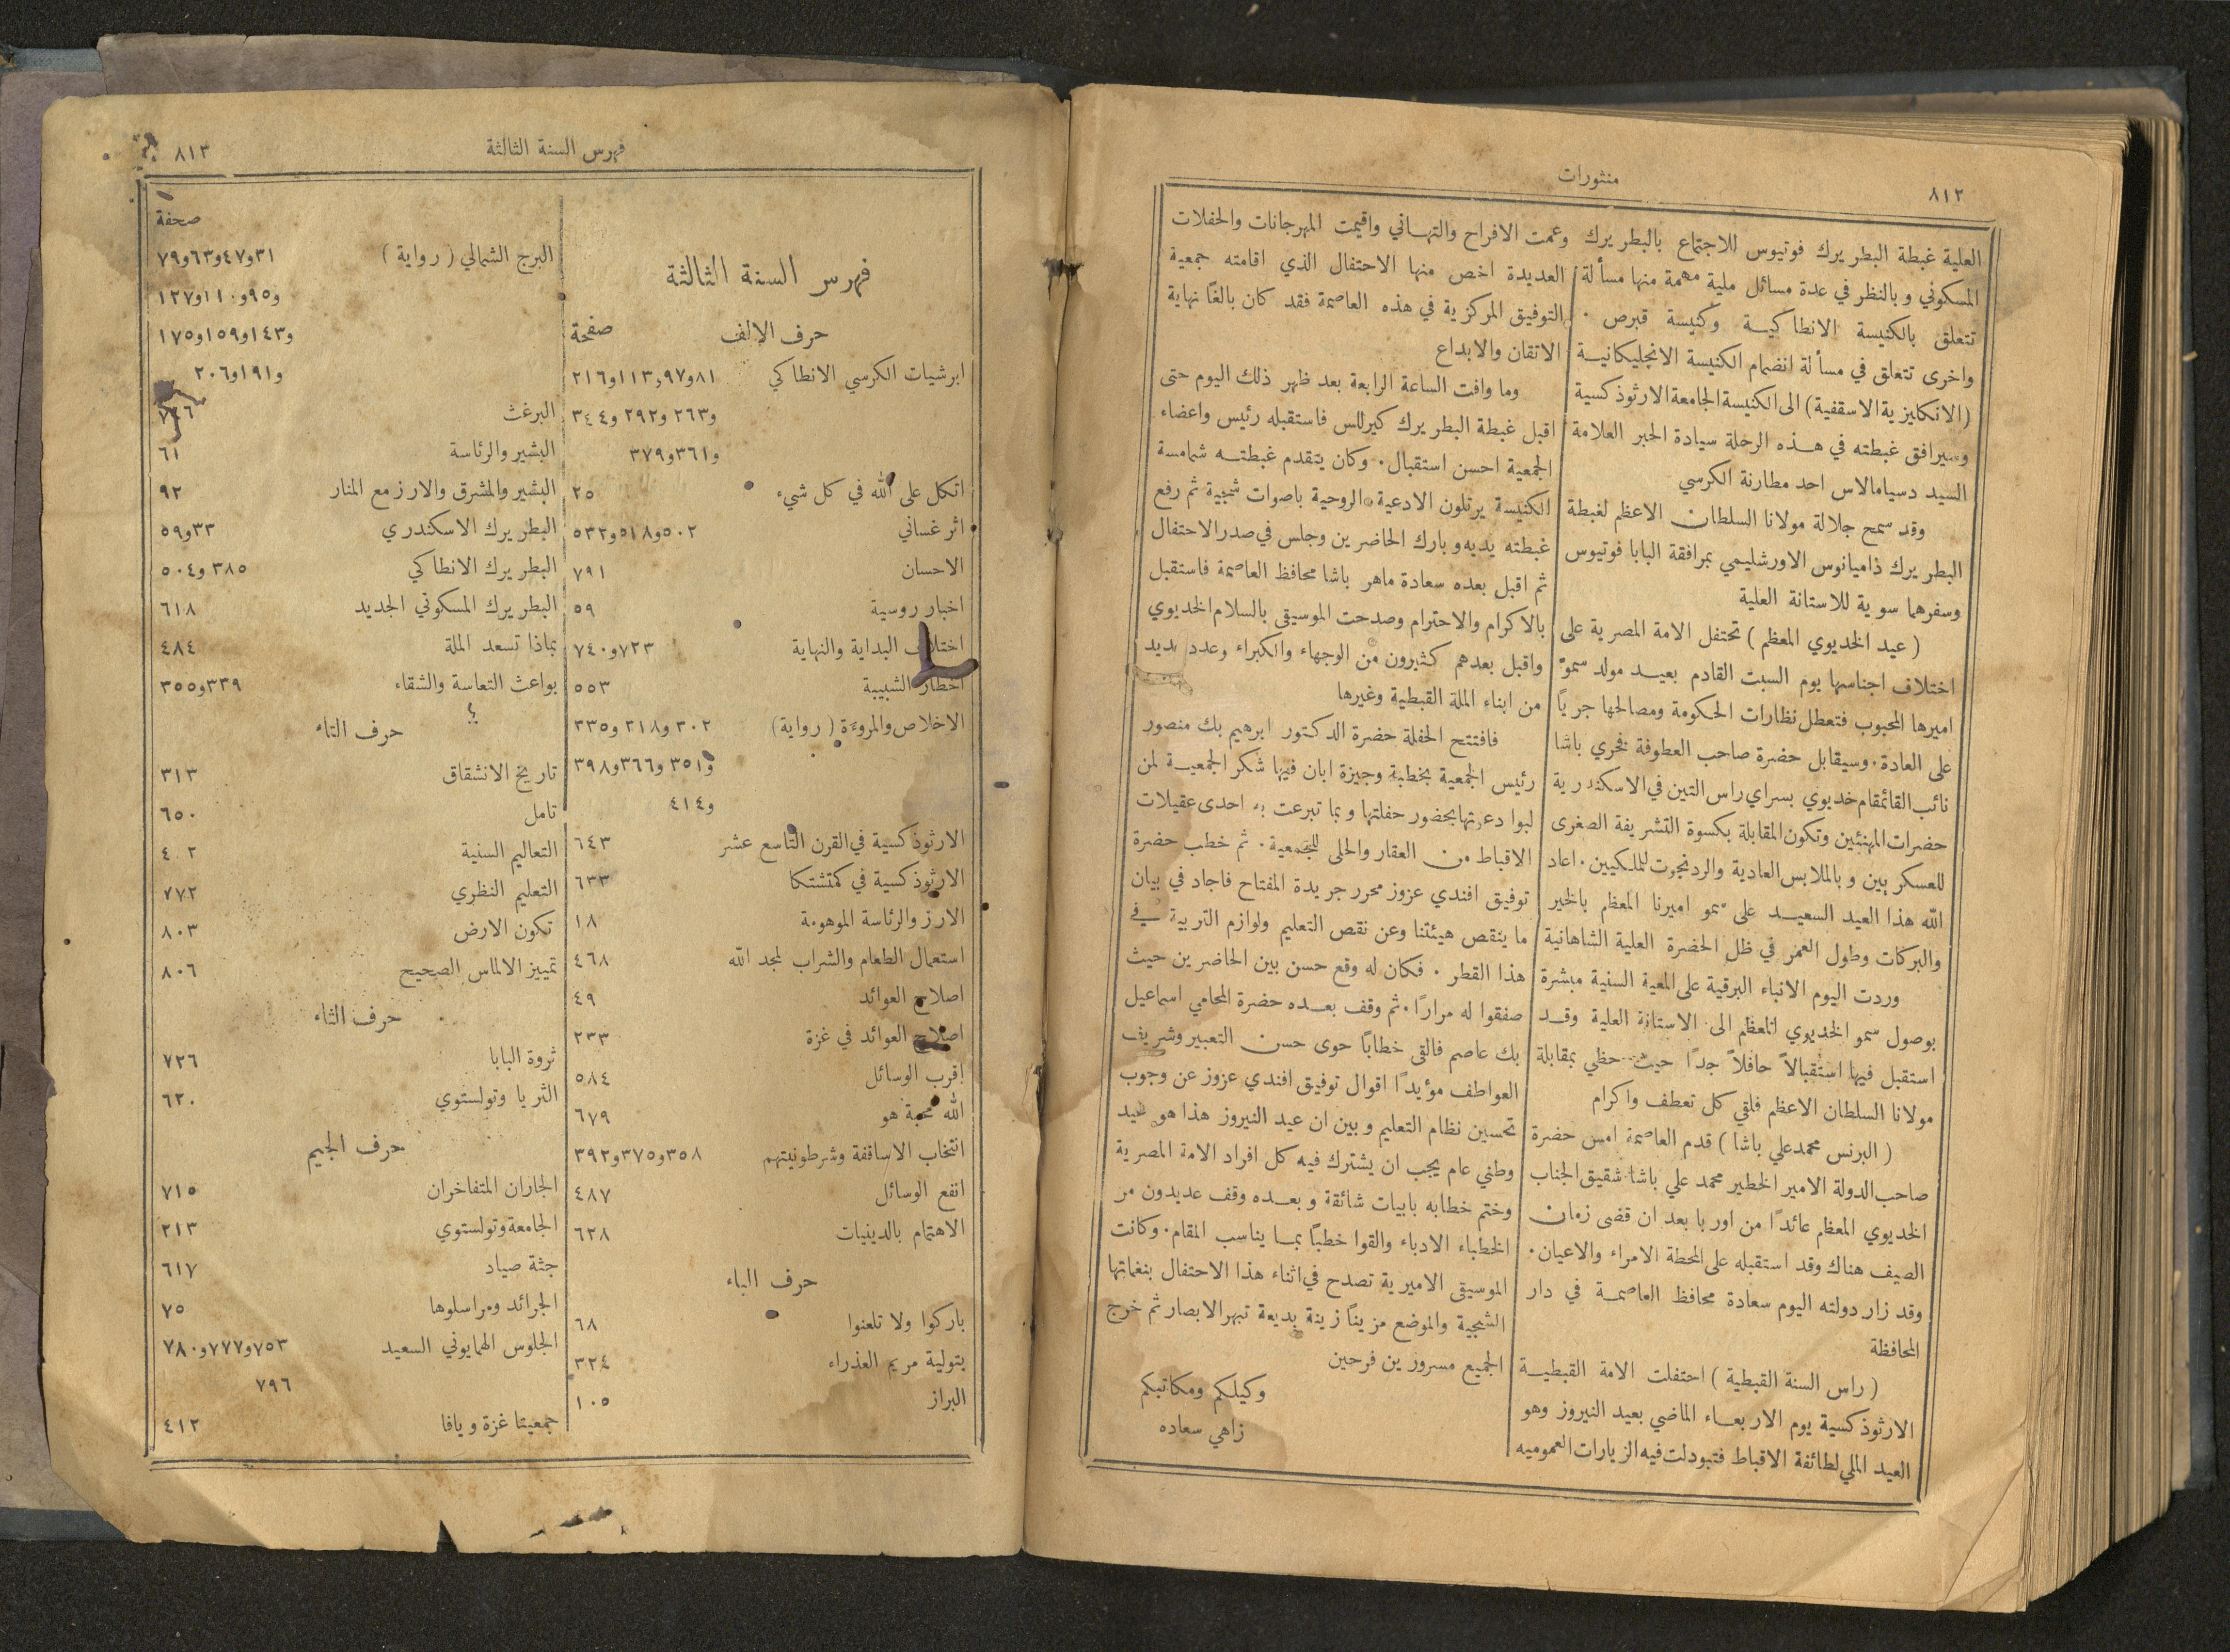 ٨١٢
منثورات
العلية غبطة البطريرك فوتيوس للاجتماع بالبطريرك
المسكوني وبالنظر في عدة مسائل ملية مهمة منها مسألة
تتعلق بالكنيسة الانطاكية وكنيسة قبرص .
واخرى تتعلق في مسألة انضمام الكنيسة الانجليكانية
(الانكليزية الاسقفية) الى الكنيسة الجامعة الارثوذكسية
وسيرافق غبطته في هذه الرحلة سيادة الحبر العلامة
السيد دسيامالاس احد مطارنة الكرسي
وقد سمح جلالة مولانا السلطان الاعظم لغبطة
البطريرك ذاميانوس الاورشليمي بمرافقة البابا فوتيوس
وسفرهما سوية للاستانة العلية
( عيد الخديوي المعظم ) تحتفل الامة المصرية على
اختلاف اجناسها يوم السبت القادم بعيد مولد سموّ
اميرها المحبوب فتعطل نظارات الحكومة ومصالحها جريًا
على العادة . وسيقابل حضرة صاحب العطوفة فخري باشا
نائب القائمقام خديوي بسراي راس التين في الاسكندرية
حضرات المهنئين وتكون المقابلة بكسوة التشريفة الصغرى
للعسكريين وبالملابس العادية والردنجوت للملكيين . اعاد
الله هذا العيد السعيد على سمو اميرنا المعظم بالخير
والبركات وطول العمر في ظل الحضرة العلية الشاهانية
وردت اليوم الانباء البرقية على المعية السنية مبشرة
بوصول سمو الخديوي المعظم الى الاستانة العلية وقد
استقبل فيها استقبالاً حافلاً جدًا حيث حظي بمقابلة
مولانا السلطان الاعظم فلقي كل تعطف واكرام
( البرنس محمد علي باشا ) قدم العاصمة امس حضرة
صاحب الدولة الامير الخطير محمد علي باشا شقيق الجناب
الخديوي المعظم عائدًا من اوربا بعد ان قضى زمان
الصيف هناك وقد استقبله على المحطة الامراء والاعيان .
وقد زار دولته اليوم سعادة محافظ العاصمة في دار
المحافظة
( راس السنة القبطية ) احتفلت الامة القبطية
الارثوذكسية يوم الاربعاء الماضي بعيد النيروز وهو
العيد الملي لطائفة الاقباط فتبودلت فيه الزيارات العموميه
وعمت الافراح والتهاني واقيمت المهرجانات والحفلات
العديدة اخص منها الاحتفال الذي اقامته جمعية
التوفيق المركزية في هذه العاصمة فقد كان بالغًا نهاية
الاتقان والابداع
وما وافت الساعة الرابعة بعد ظهر ذلك اليوم حتى
اقبل غبطة البطريرك كيرللس فاستقبله رئيس واعضاء
الجمعية احسن استقبال . وكان يتقدم غبطته شمامسة
الكنيسة يرتلون الادعية الروحية باصوات شجية ثم رفع
غبطته يديه وبارك الحاضرين وجلس في صدر الاحتفال
ثم اقبل بعده سعادة ماهر باشا محافظ العاصمة فاستقبل
بالاكرام والاحترام وصدحت الموسيقى بالسلام الخديوي
واقبل بعدهم كثيرون من الوجهاء والكبراء وعدد
من ابناء الملة القبطية وغيرها
فافتتح الحفلة حضرة الدكتور ابرهيم بك منصور
رئيس الجمعية بخطبة وجيزة ابان فيها شكر الجمعية لمن
لبوا دعوتها بحضور حفلتها وبما تبرعت به احدى عقيلات
الاقباط من العقار والحلى للجمعية . ثم خطب حضرة
توفيق افندي عزوز محرر جريدة المفتاح فاجاد في بيان
ما ينقص هيئتنا وعن نقص التعليم ولوازم التربية في
هذا القطر . فكان له وقع حسن بين الحاضرين حيث
صفقوا له مرارًا . ثم وقف بعده حضرة المحامي اسماعيل
بك عاصم فالقى خطابًا حوى حسن التعبير وشريف
العواطف مؤيدًا اقوال توفيق افندي عزوز عن وجوب
تحسين نظام التعليم وبين ان عيد النيروز هذا هو عيد
وطني عام يجب ان يشترك فيه كل افراد الامة المصرية
وختم خطابه بابيات شائقة وبعده وقف عديدون من
الخطباء الادباء والقوا خطبًا بما يناسب المقام . وكانت
الموسيقى الاميرية تصدح في اثناء هذا الاحتفال بنغماتها
الشجية والموضع مزينًا زينة بديعة تبهر الابصار ثم خرج
الجميع مسرورين فرحين
وكيلكم ومكاتبكم
زاهي سعاده
فهرس السنة الثالثة
٨١٣
فهرس السنة الثالثة
حرف الالف صفحة
ابرشيات الكرسي الانطاكي ٨١و٩٧و١١٣و٢١٦
و٢٦٣ و٢٩٢ و٣٤٤
و٣٦١و٣٧٩
اتكل على الله في كل شيء ٢٥
اثر غساني ٥٠٢و٥١٨و٥٣٢
الاحسان ٧٩١
اخبار روسية ٥٩
اختلاف البداية والنهاية ٧٢٣و٧٤٠
اخطار الشبيبة ٥٥٣
الاخلاص والمروءَة ( رواية ) ٣٠٢ و٣١٨ و٣٣٥
و٣٥١ و٣٦٦و٣٩٨
و٤١٤
الارثوذكسية في القرن التاسع عشر ٦٤٣
الارثوذكسية في كمتشتكا ٦٣٣
الارز والرئاسة الموهومة ١٨
استعمال الطعام والشراب لمجد الله ٤٦٨
اصلاح العوائد ٤٩
اصلاح العوائد في غزة ٢٣٣
اقرب الوسائل ٥٨٤
الله محبة هو ٦٧٩
انتخاب الاساقفة وشرطونيتهم ٣٥٨و٣٧٥و٣٩٢
انفع الوسائل ٤٨٧
الاهتمام بالدينيات ٦٢٨
حرف الباء
باركوا ولا تلعنوا ٦٨
بتولية مريم العذراء ٣٢٤
البراز ١٠٥
صحفة
البرج الشمالي ( رواية ) ٣١و٤٧و٦٣و٧٩
و٩٥و١١٠و١٢٧
و١٤٣و١٥٩و١٧٥
و١٩١و٢٠٦
البرغث
البشير والرئاسة ٦١
البشير والمشرق والارز مع المنار ٩٢
البطريرك الاسكندري ٣٣و٥٩
البطريرك الانطاكي ٣٨٥ و٥٠٤
البطريرك المسكوني الجديد ٦١٨
بماذا تسعد الملة ٤٨٤
بواعث التعاسة والشقاء ٣٣٩و٣٥٥
حرف التاء
تاريخ الانشقاق ٣١٣
تامل ٦٥٠
التعاليم السنية ٤٠٢
التعليم النظري ٧٧٢
تكون الارض ٨٠٣
تمييز الالماس الصحيح ٨٠٦
حرف الثاء
ثروة البابا ٧٢٦
الثريا وتولستوي ٦٢٠
حرف الجيم
الجاران المتفاخران ٧١٥
الجامعة وتولستوي ٢١٣
جثة صياد ٦١٧
الجرائد ومراسلوها ٧٥
الجلوس الهمايوني السعيد ٧٥٣و٧٧٧و٧٨٠
٧٩٦
جمعيتا غزة ويافا ٤١٢